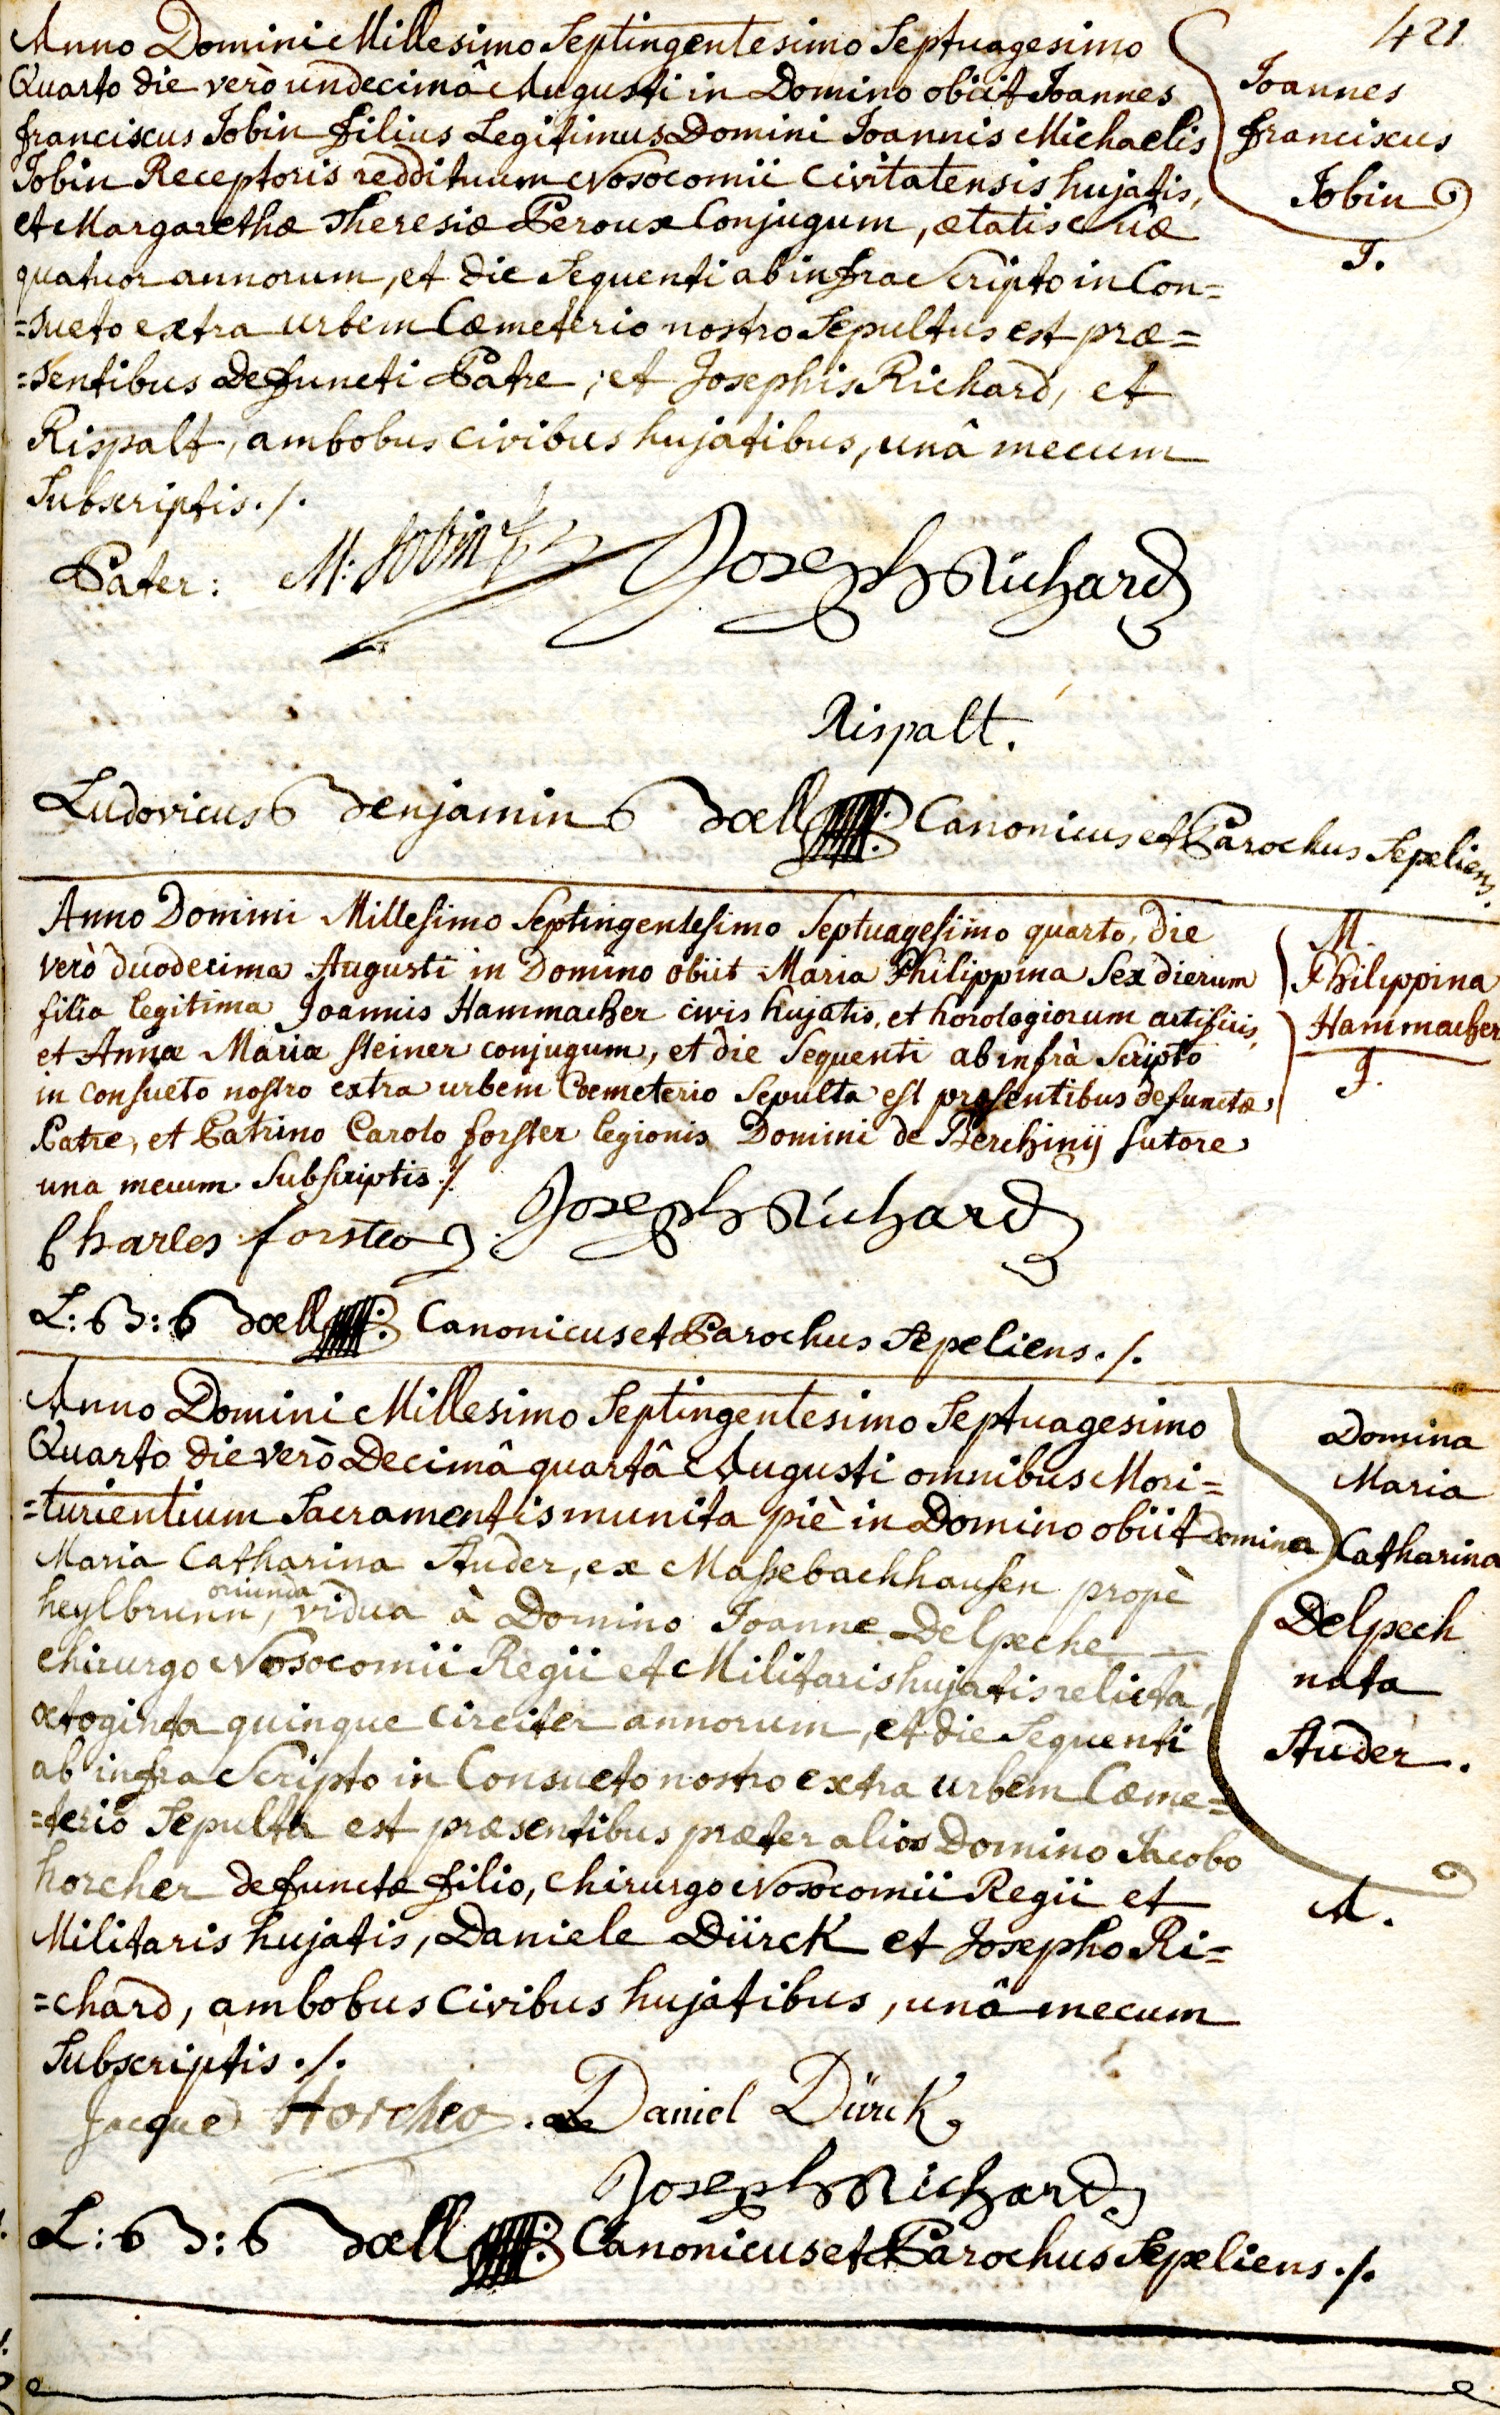 421
Anno Domini Millesimo Septingentesimo Septuagesimo
Quarto die verò undecimâ Augusti in Domino obiit Joannes
franciscus Jobin filius Legitimus Domini Joannis Michaelis
Jobin Receptoris reddituum Nosocomii Civitatensis hujatis,
et Margarethæ Theresiæ Peroux Conjugum, ætatis suæ
quatuor annorum, et die Sequenti ab infra Scripto in Con=
=sueto extra urbem Cæmeterio nostro Sepultus est præ=
=sentibus Defuncti Patre, et Josephis Richard, et
Rispalt, ambobus Civibus hujatibus, unâ mecum
Subscriptis./.
Joannes
franciscus
Jobin
J.
Pater: M: Jobin Joseph Richard
Rispalt.
Ludovicus Benjamin Boell Canonicus et Parochus Sepeliens.
Anno Domini Millesimo Septingentesimo Septuagesimo quarto, die
verò duodecima Augusti in Domino obiit Maria Philippina Sex dierum
filia legitima Joannis Hammacher civis hujatis, et horologiorum artificis,
et Annæ Mariæ Steiner conjugum, et die Sequenti ab infrà Scripto
in consueto nostro extra urbem Coemeterio Sepulta est præsentibus defunctæ
Patre, et Patrino Carolo forster legionis Domini de Berchinij sutore
una mecum Subscriptis./.
M.
Philippina
Hammacher
J.
Charles forster Joseph Richard
L: B: Boell Canonicus et Parochus Sepeliens./.
Anno Domini Millesimo Septingentesimo Septuagesimo
Quarto die verò Decimâ quartâ Augusti omnibus Mori=
=turientium Sacramentis munita piè in Domino obiit Domina
Maria Catharina Auder, ex Massebachhausen propè
heylbrunn, oriunda vidua à Domino Joanne Delpeche
Chirurgo Nosocomii Regii et Militaris hujatis relicta,
octoginta quinque circiter annorum, et die Sequenti
ab infra Scripto in Consueto nostro extra urbem Cæme=
=terio Sepulta est præsentibus præter alios Domino Jacobo
horcher defunctæ filio, Chirurgo Nosocomii Regii et
Militaris hujatis, Daniele Dürck et Josepho Ri=
=chard, ambobus Civibus hujatibus, unâ mecum
Subscriptis./.
Domina
Maria
Catharina
Delpech
nata
Auder.
A.
Jacque Horcher. Daniel Dürck
Joseph Richard
L: B: Boell Canonicus et Parochus Sepeliens./.